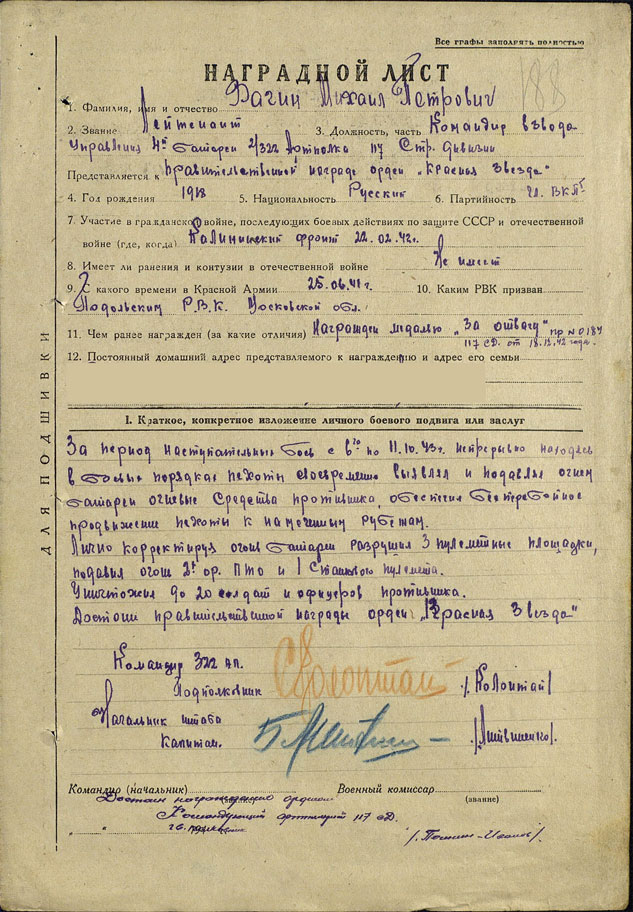 Все графы заполнять полностью
НАГРАДНОЙ ЛИСТ
188
1. Фамилия, имя и отчество Вагин Михаил Петрович
2. Звание Лейтенант 3. Должность, часть Командир взвода
управления 4й батареи 2/322 Артполка 117 Стр. Дивизии
Представляется к правительственной награде орден „Красная Звезда"
4. Год рождения 1918 5. Национальность Русский 6. Партийность
7. Участие в гражданской войне, последующих боевых действиях по защите СССР и отечественной
войне (где, когда) Калининский фронт 22.02.42г.
8. Имеет ли ранения и контузии в отечественной войне Не имеет
9. С какого времени в Красной Армии 25.06.41г. 10. Каким РВК призван
Подольским Р.В.К. Московской обл.
11. Чем ранее награжден (за какие отличия) Награжден медалью „За отвагу" пр № 0187
117 СД. от 18.12.42 года.
12. Постоянный домашний адрес представляемого к награждению и адрес его семьи
I. Краткое, конкретное изложение личного боевого подвига или заслуг
За период наступательных боев с 6го по 11.10.43г. непрерывно находясь
в боевых порядках пехоты своевременно выявлял и подавлял огнем
батареи огневые средства противника, обеспечил бесперебойное
продвижение пехоты к намеченным рубежам.
Лично корректируя огонь батареи разрушил 3 пулеметные площадки,
подавил огонь 2х ор. ПТО и 1 станкового пулемета.
Уничтожил до 20 солдат и офицеров противника.
Достоин правительственной награды орден „Красная Звезда"
Командир 322 ап.
Подполковник /Колонтай/
Начальник штаба
Капитан. /Литвиненко/
Командир (начальник) Военный комиссар
(звание)
Достоин награждению орденом
Командующий артиллерией 117 сД.
ДЛЯ ПОДШИВКИ